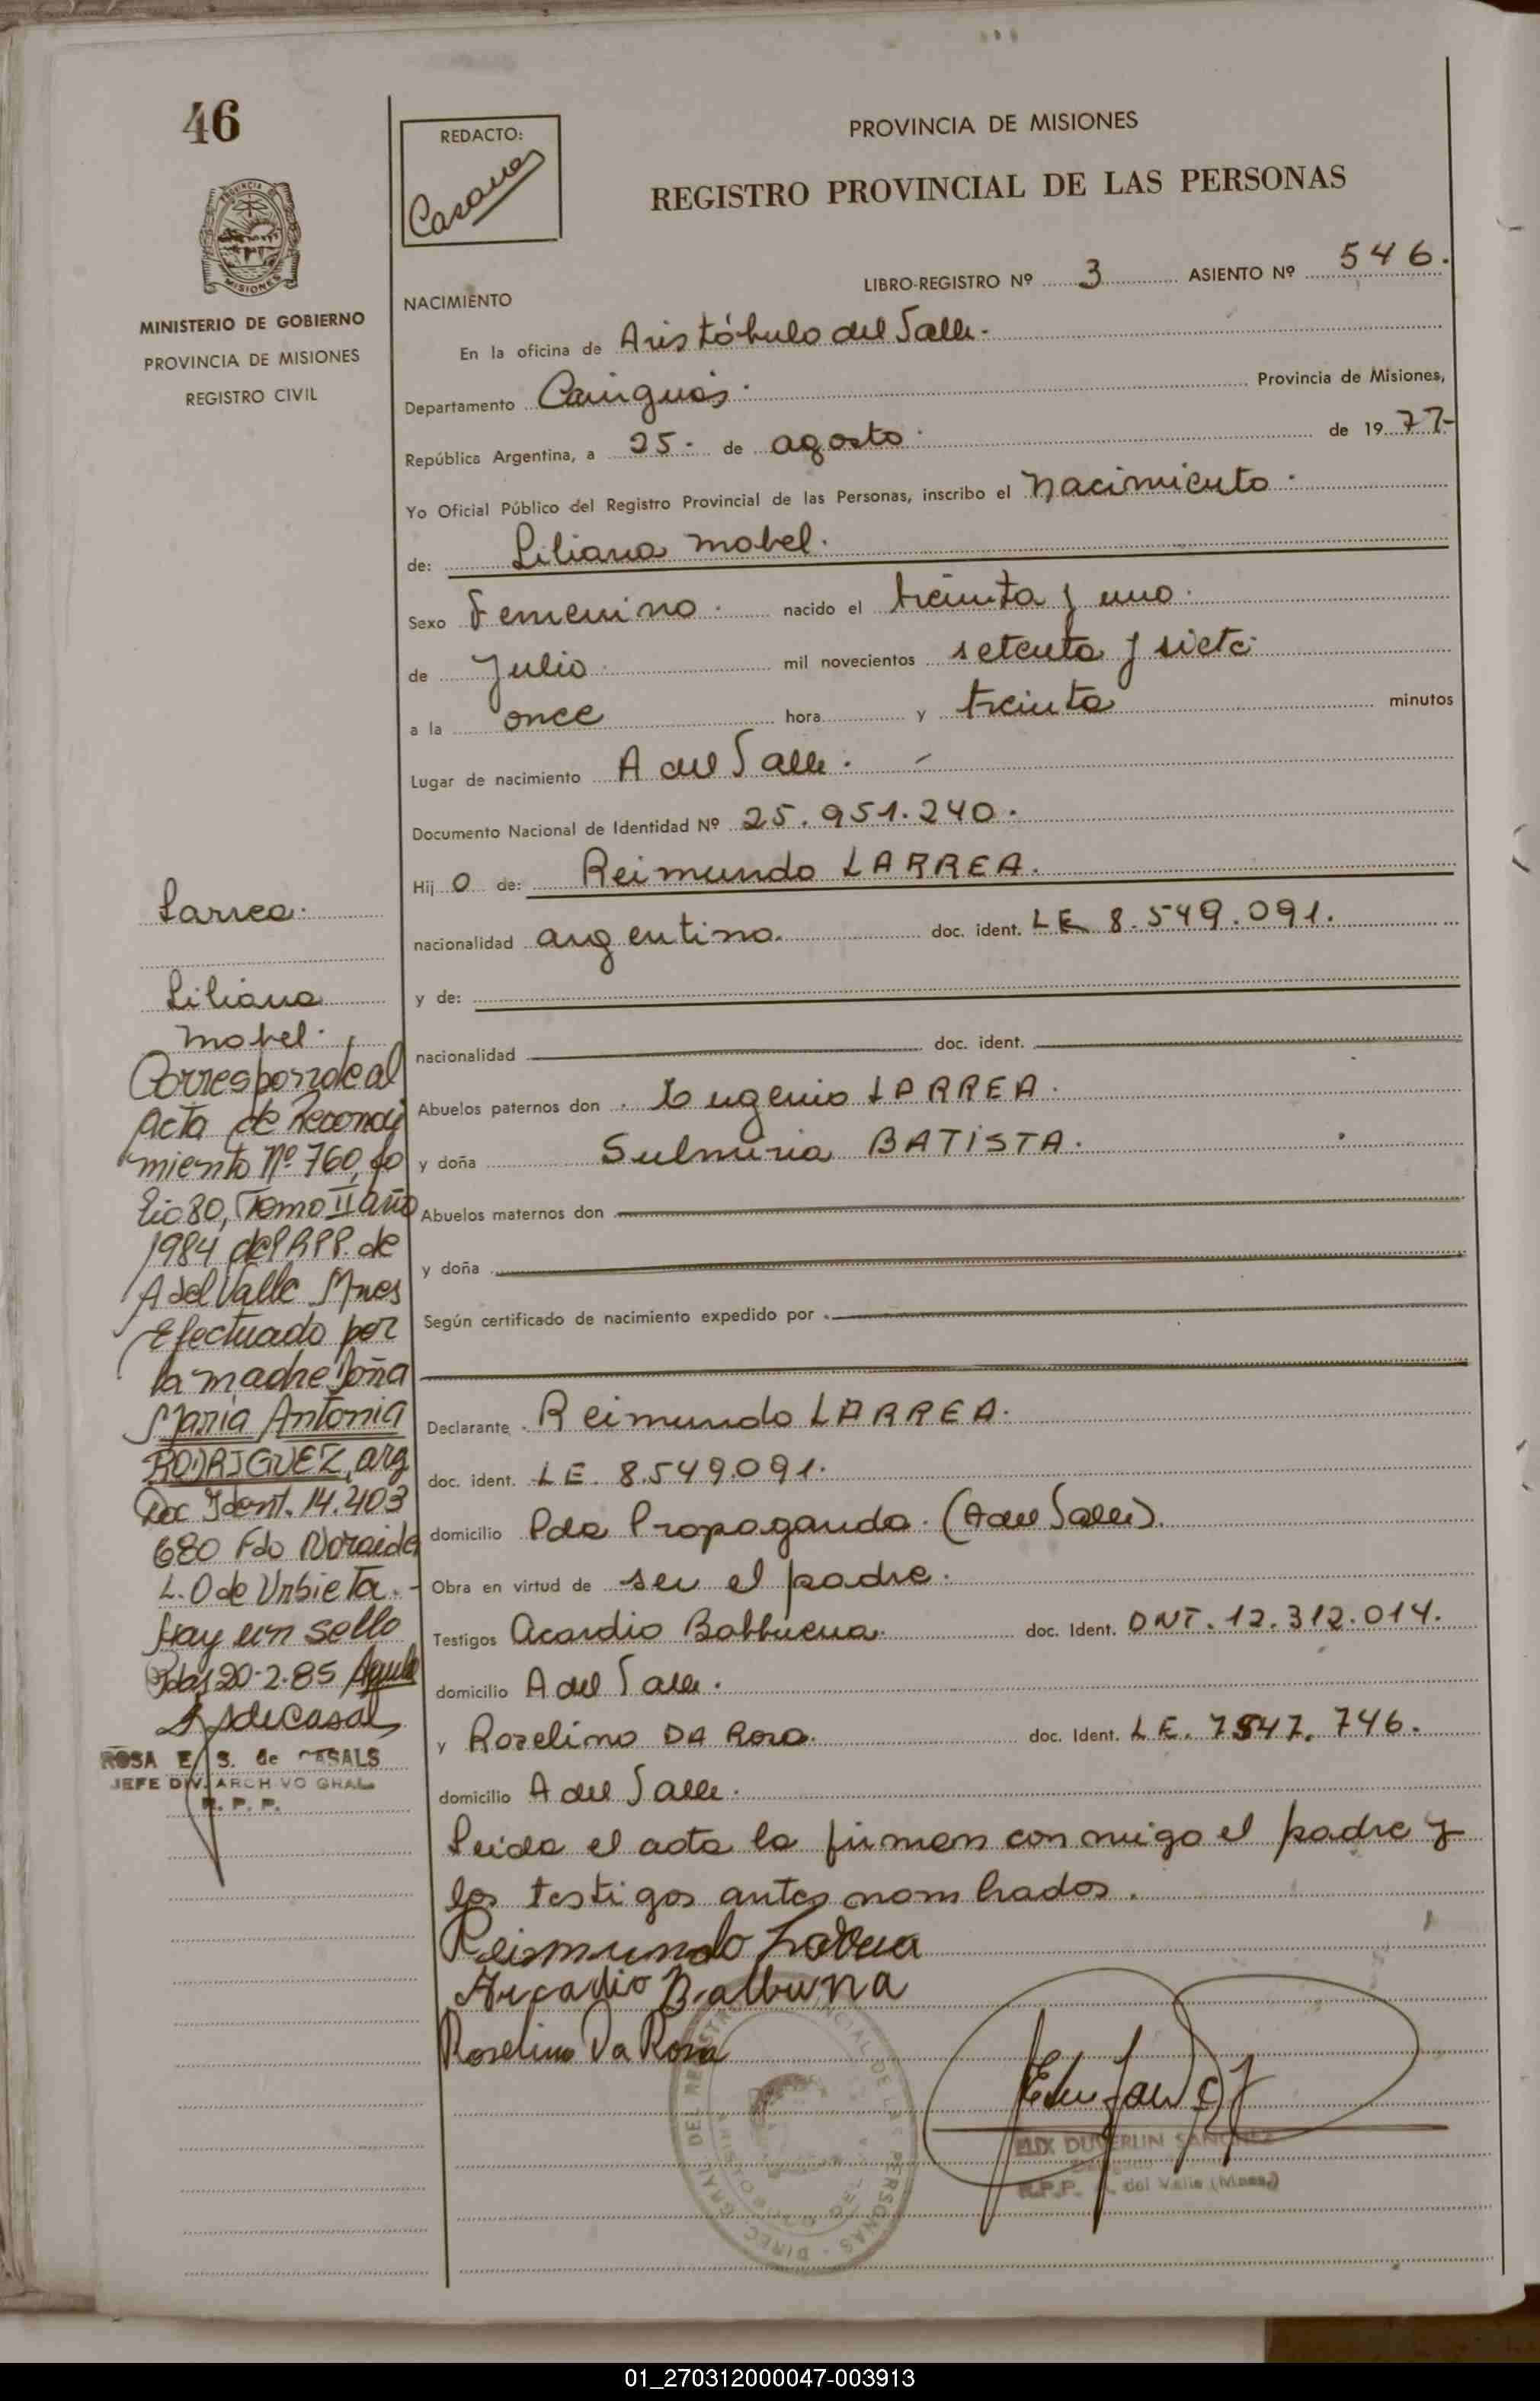 46
REDACTO:
Casanes
PROVINCIA DE MISIONES
REGISTRO PROVINCIAL DE LAS PERSONAS
PROVINCIA
MISIONES
MINISTERIO DE GOBIERNO
PROVINCIA DE MISIONES
REGISTRO CIVIL
LIBRO-REGISTRO Nº 3 ASIENTO Nº 546.
NACIMIENTO
En la oficina de Aristóbulo del Valle.
Departamento Cainguás. Provincia de Misiones,
República Argentina, a 25. de agosto. de 1977-
Yo Oficial Público del Registro Provincial de las Personas, inscribo el nacimiento.
de: Liliana mabel.
Sexo Femenino. nacido el treinta y uno.
de Julio. mil novecientos setenta y siete.
a la once hora y treinta minutos
Lugar de nacimiento A del Valle.
Documento Nacional de Identidad Nº 25.951.240.
Hij o de: Reimundo LARREA.
nacionalidad argentina. doc. ident. LE 8.549.091.
y de:
nacionalidad doc. ident.
Abuelos paternos don Eugenio LARREA.
y doña Sulmiria BATISTA.
Abuelos maternos don
y doña
Según certificado de nacimiento expedido por
Declarante Reimundo LARREA.
doc. ident. LE. 8.549.091.
domicilio Pda Propaganda. (A del Valle).
Obra en virtud de ser el padre.
Testigos Acardio Balbuena. doc. Ident. DNI. 12.312.014.
domicilio A del Valle.
y Rozelino DA Rosa. doc. Ident. LE. 7547.746.
domicilio A del Valle.
Leida el acta la firman con migo el padre y
los testigos antes nombrados.
Reismundo Larrea
Arcadio Balbuna
Roselino Da Rosa
Larrea.
Liliana
mabel.
Corresponde al
Acta de Reconoci
miento Nº 760, fo
lio 80, Tomo II año
1984 del R.P.P. de
A del Valle Mnes
Efectuado por
la madre Doña
Maria Antonia
RODRIGUEZ, arg
Doc Ident. 14.403
680 Fdo Noraida
L. O de Urbieta.-
Hay un sello
Pdas 20-2-85
S de Casals
ROSA E. S. de CASALS
JEFE DIV. ARCHIVO GRAL.
R. P. P.
DIREC. GRAL. DEL REGISTRO PROVINCIAL DE LAS PERSONAS
ELIX DUVERLIN SANCHEZ
R.P.P. A. del Valle (Mnes.)
01_270312000047-003913